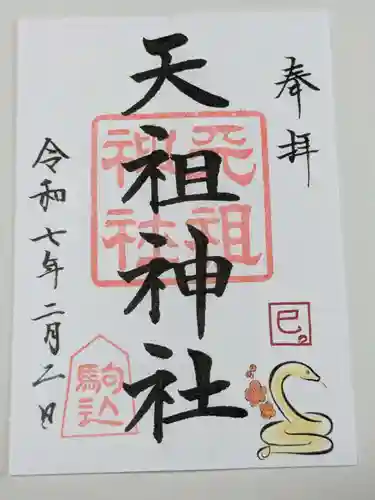 奉拝
天祖神社
天祖神社
巳
令和七年二月二日
駒込